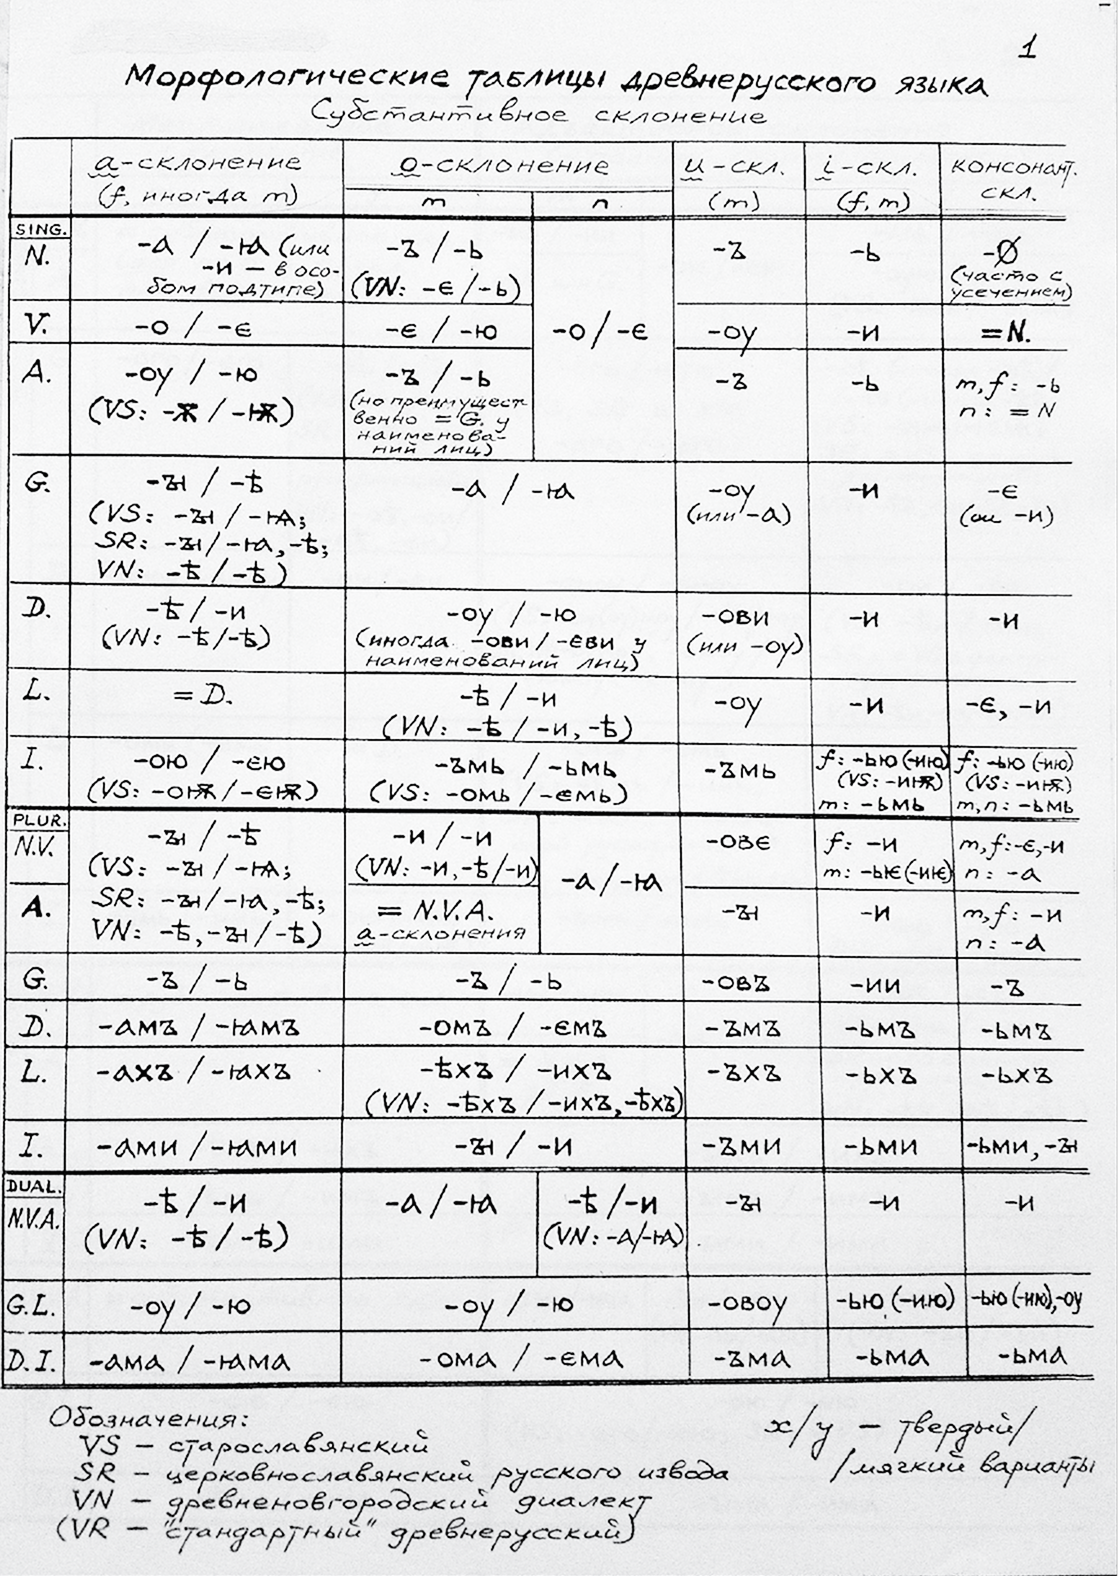 1
Морфологические таблицы древнерусского языка
Субстантивное склонение
a-склонение o-склонение u-скл. i-скл. консонант.
(f, иногда m) m n (m) (f, m) скл.
SING.
N. -а / -ꙗ (или -ъ / -ь -ъ -ь -Ø
-и — в осо- (часто с
бом подтипе) (VN: -є / -ь) усечением)
V. -о / -є -є / -ю -о / -є -оу -и =N.
A. -оу / -ю -ъ / -ь -ъ -ь m, f: -ь
(VS: -ѫ / -ѭ) (но преимущест- n: = N
венно = G. у
наименова-
ний лиц)
G. -ꙑ / -ѣ -а / -ꙗ -оу -и -є
(VS: -ꙑ / -ѩ; (или -а) (or -и)
SR: -ꙑ / -ꙗ, -ѣ;
VN: -ѣ / -ѣ)
D. -ѣ / -и -оу / -ю -ови -и -и
(VN: -ѣ / -ѣ) (иногда -ови / -єви у (или -оу)
наименований лиц)
L. = D. -ѣ / -и -оу -и -є, -и
(VN: -ѣ / -и, -ѣ)
I. -ою / -єю -ъмь / -ьмь -ъмь f: -ью (-ию) f: -ью (-ию)
(VS: -оѭ / -єѭ) (VS: -омь / -ємь) (VS: -иѭ) (VS: -иѭ)
m: -ьмь m, n: -ьмь
PLUR.
N.V. -ꙑ / -ѣ -и / -и -овє f: -и m, f: -є, -и
(VS: -ꙑ / -ѩ; (VN: -и, -ѣ / -и) -а / -ꙗ m: -ьѥ (-иѥ) n: -а
A. SR: -ꙑ / -ꙗ, -ѣ; = N.V.A. -ꙑ -и m, f: -и
VN: -ѣ, -ꙑ / -ѣ) a-склонения n: -а
G. -ъ / -ь -ъ / -ь -овъ -ии -ъ
D. -амъ / -ꙗмъ -омъ / -ємъ -ъмъ -ьмъ -ьмъ
L. -ахъ / -ꙗхъ -ѣхъ / -ихъ -ъхъ -ьхъ -ьхъ
(VN: -ѣхъ / -ихъ, -ѣхъ)
I. -ами / -ꙗми -ꙑ / -и -ъми -ьми -ьми, -ꙑ
DUAL.
N.V.A. -ѣ / -и -а / -ꙗ -ѣ / -и -ꙑ -и -и
(VN: -ѣ / -ѣ) (VN: -а / -ꙗ)
G.L. -оу / -ю -оу / -ю -овоу -ью (-ию) -ью (-ию), -оу
D.I. -ама / -ꙗма -ома / -єма -ъма -ьма -ьма
Обозначения: x/y — твердый/
VS — старославянский /мягкий варианты
SR — церковнославянский русского извода
VN — древненовгородский диалект
(VR — "стандартный" древнерусский)